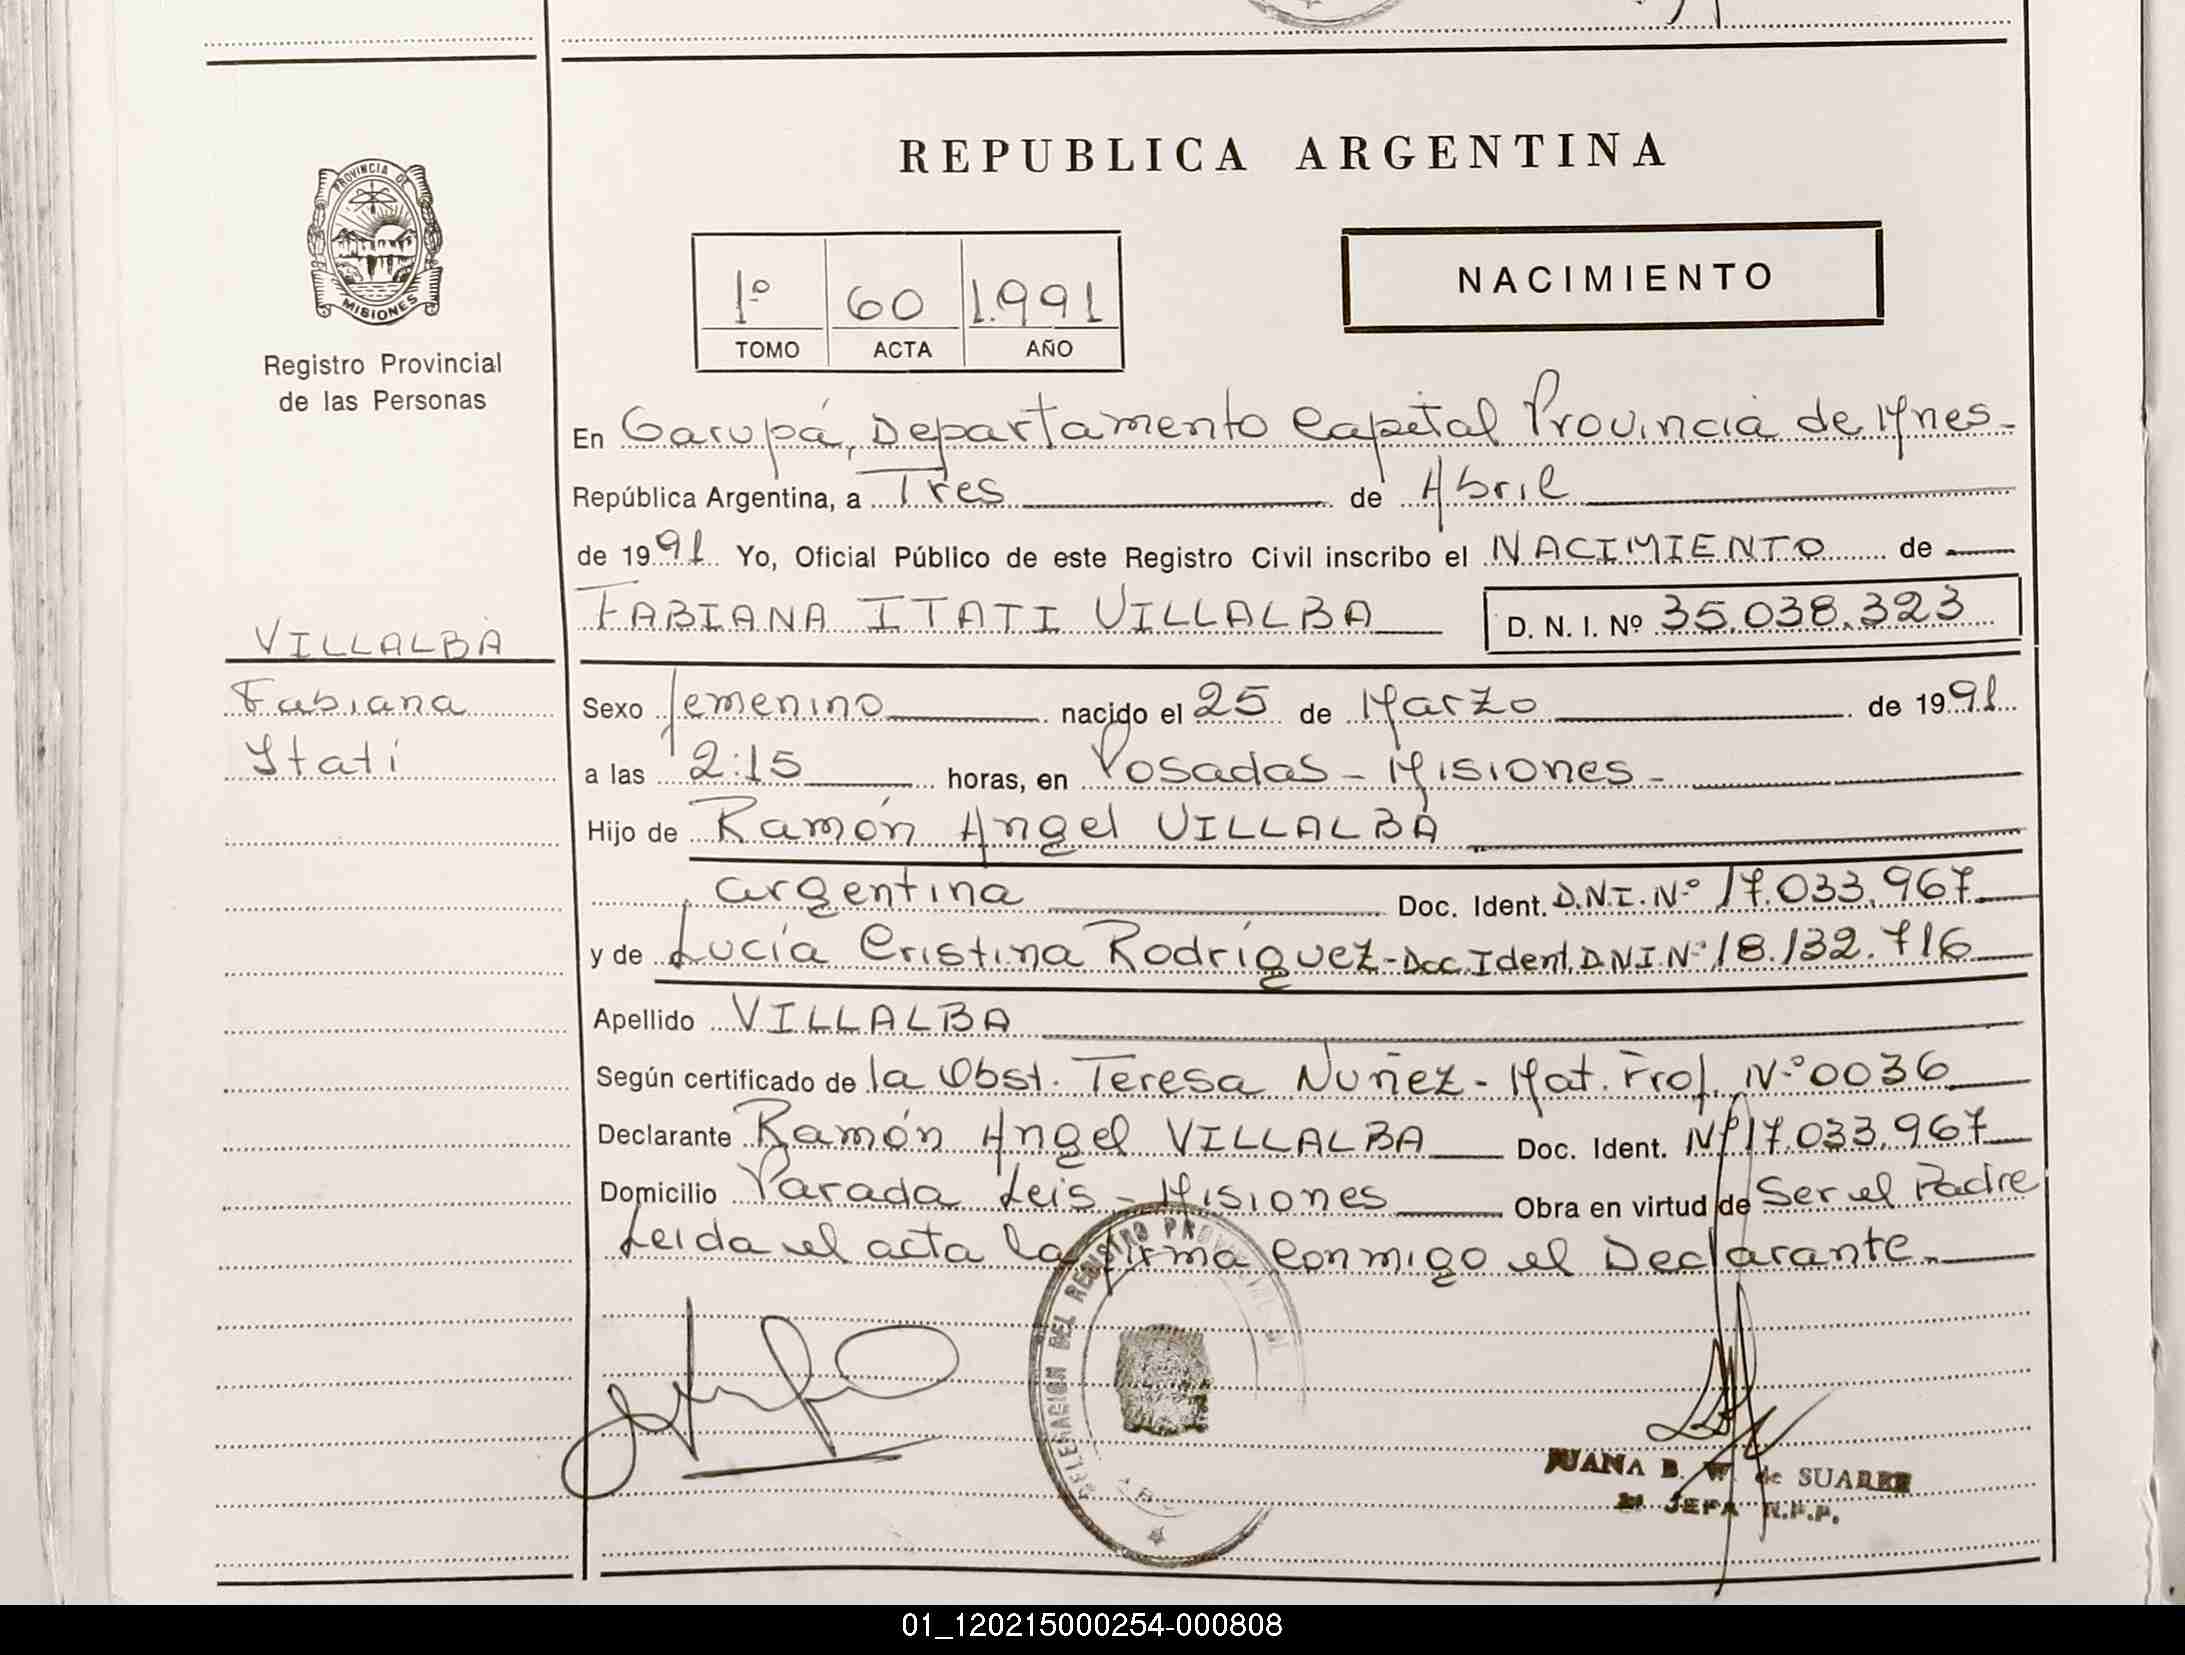 REPUBLICA ARGENTINA
PROVINCIA DE
MISIONES
Registro Provincial
de las Personas
1º 60 1.991
TOMO ACTA AÑO
NACIMIENTO
En Garupá, Departamento Capital Provincia de Mnes-
República Argentina, a Tres de Abril
de 1991 Yo, Oficial Público de este Registro Civil inscribo el NACIMIENTO de
FABIANA ITATI VILLALBA D. N. I. Nº 35.038.323
VILLALBA
Fabiana
Itatí
Sexo femenino nacido el 25 de Marzo de 1991
a las 2:15 horas, en Posadas - Misiones-
Hijo de Ramón Angel VILLALBA
argentina Doc. Ident. D.N.I. Nº 17.033.967
y de Lucía Cristina Rodríguez - Doc. Ident. D.N.I Nº 18.132.716
Apellido VILLALBA
Según certificado de la Obst. Teresa Nuñez - Mat. Prof. Nº 0036
Declarante Ramón Angel VILLALBA Doc. Ident. Nº 17.033.967
Domicilio Parada Leis - Misiones Obra en virtud de Ser el Padre
Leida el acta la firma conmigo el Declarante.
DELEGACION DEL REGISTRO PROVINCIAL
JUANA B. W. de SUAREZ
JEFA R.P.P.
01_120215000254-000808